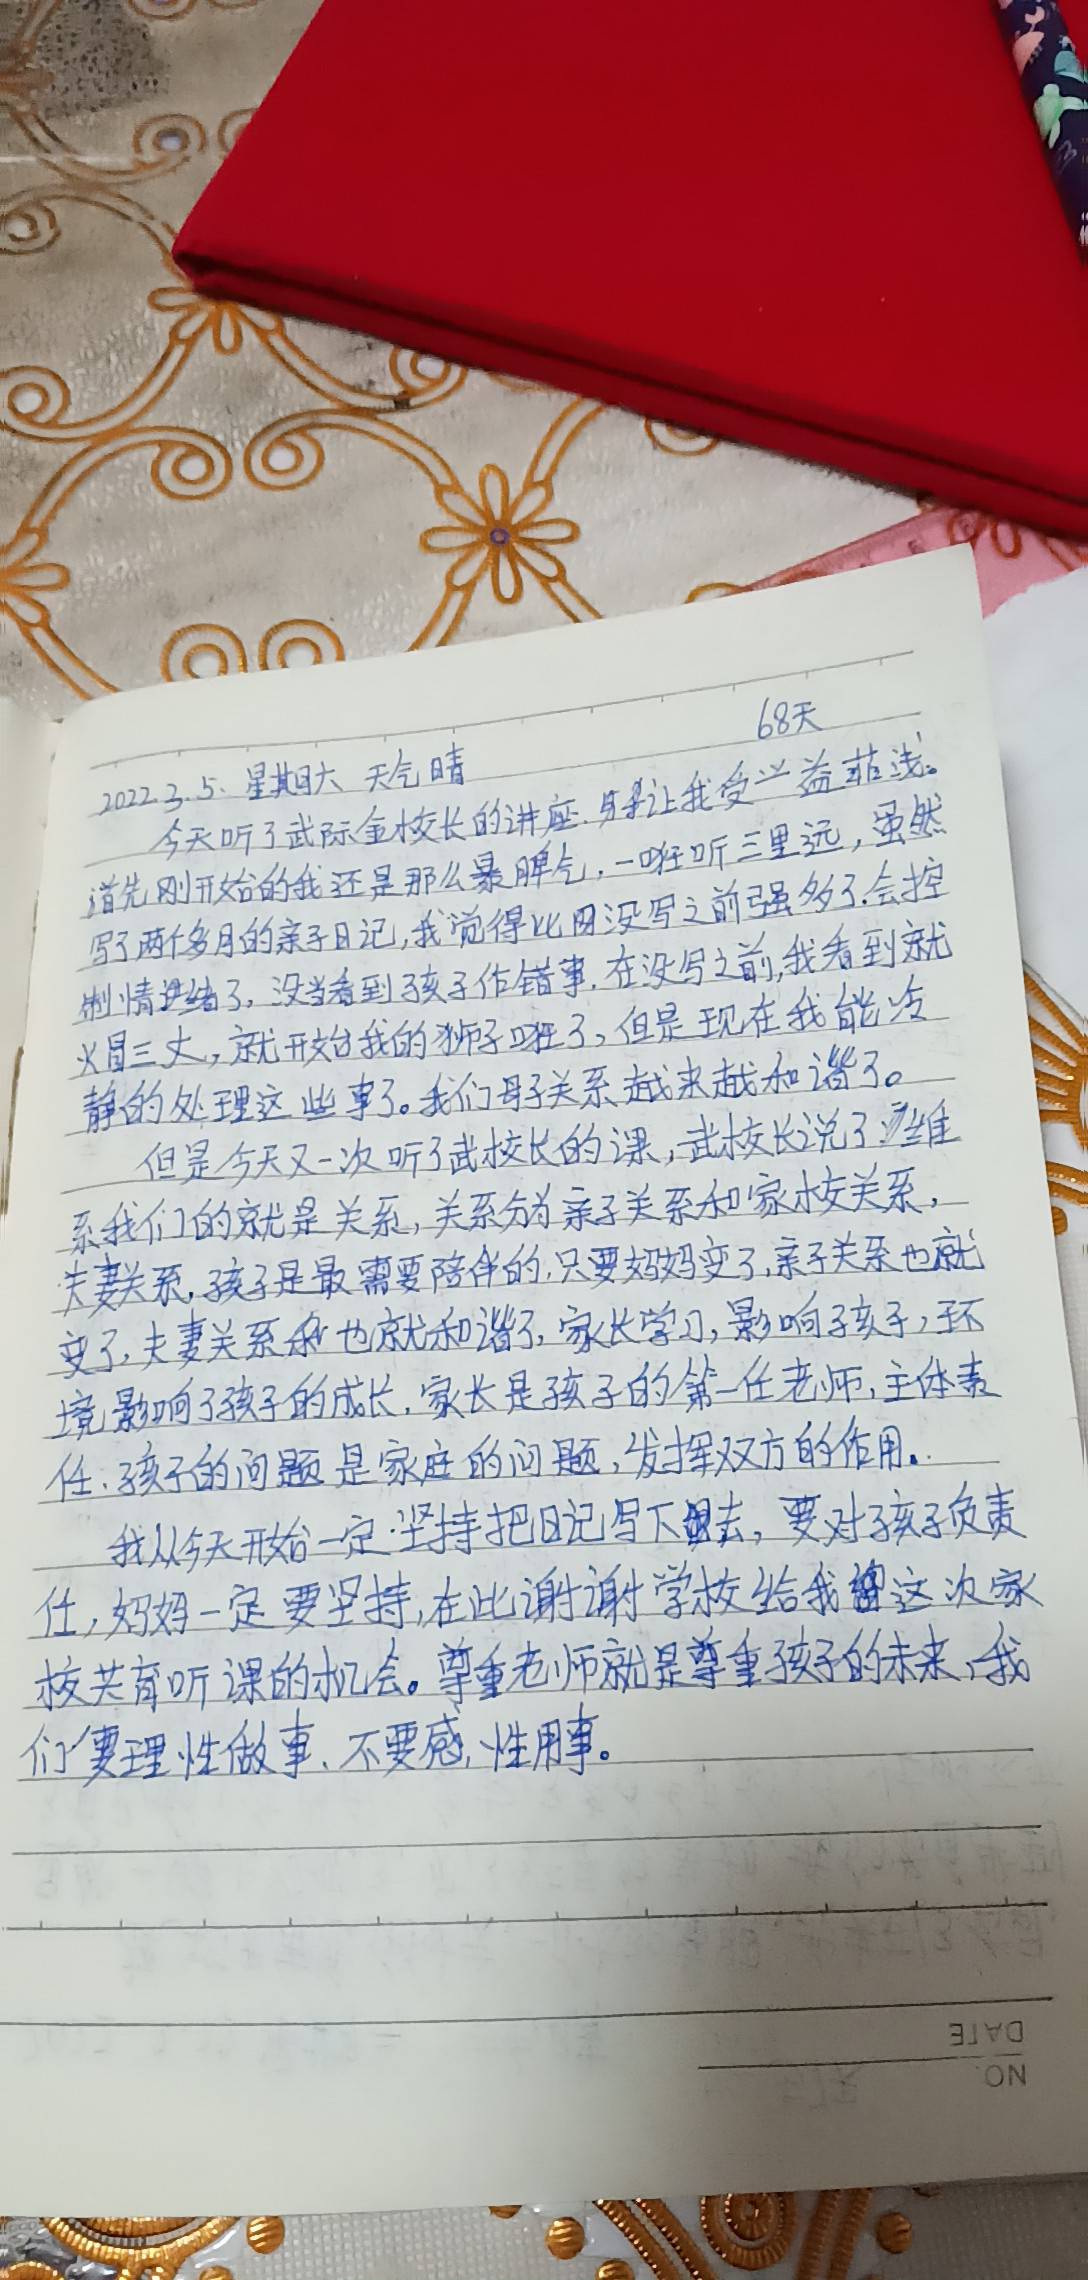 68天
2022.3.5. 星期六 天气晴
今天听了武际金校长的讲座.让我受益菲浅。
首先刚开始的我还是那么暴脾气,一吼听三里远,虽然
写了两个多月的亲子日记,我觉得比没写之前强多了.会控
制情绪了,没当看到孩子作错事.在没写之前,我看到就
火冒三丈,就开始我的狮子吼了,但是现在我能冷
静的处理这些事了。我们母子关系越来越和谐了。
但是今天又一次听了武校长的课,武校长说了维
系我们的就是关系,关系分为亲子关系和家校关系,
夫妻关系,孩子是最需要陪伴的.只要妈妈变了,亲子关系也就
变了,夫妻关系也就和谐了,家长学习,影响孩子,环
境影响了孩子的成长.家长是孩子的第一任老师,主体责
任.孩子的问题是家庭的问题,发挥双方的作用.
我从今天开始一定坚持把日记写下去,要对孩子负责
任,妈妈一定要坚持,在此谢谢学校给我这次家
校共育听课的机会。尊重老师就是尊重孩子的未来,我
们要理性做事.不要感性用事。
DATE
NO.